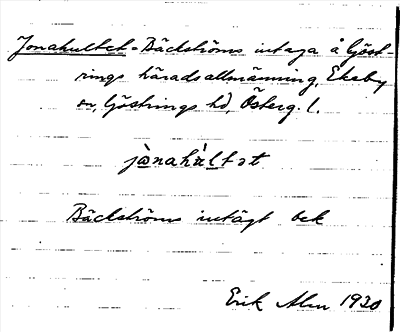 Jonahultet = Bäckströms intaga å Göst-
rings häradsallmänning, Ekeby
sn, Göstrings hd, Österg. l.
jònahùltət
Bäckströms intägt bek
Erik Alm 1930